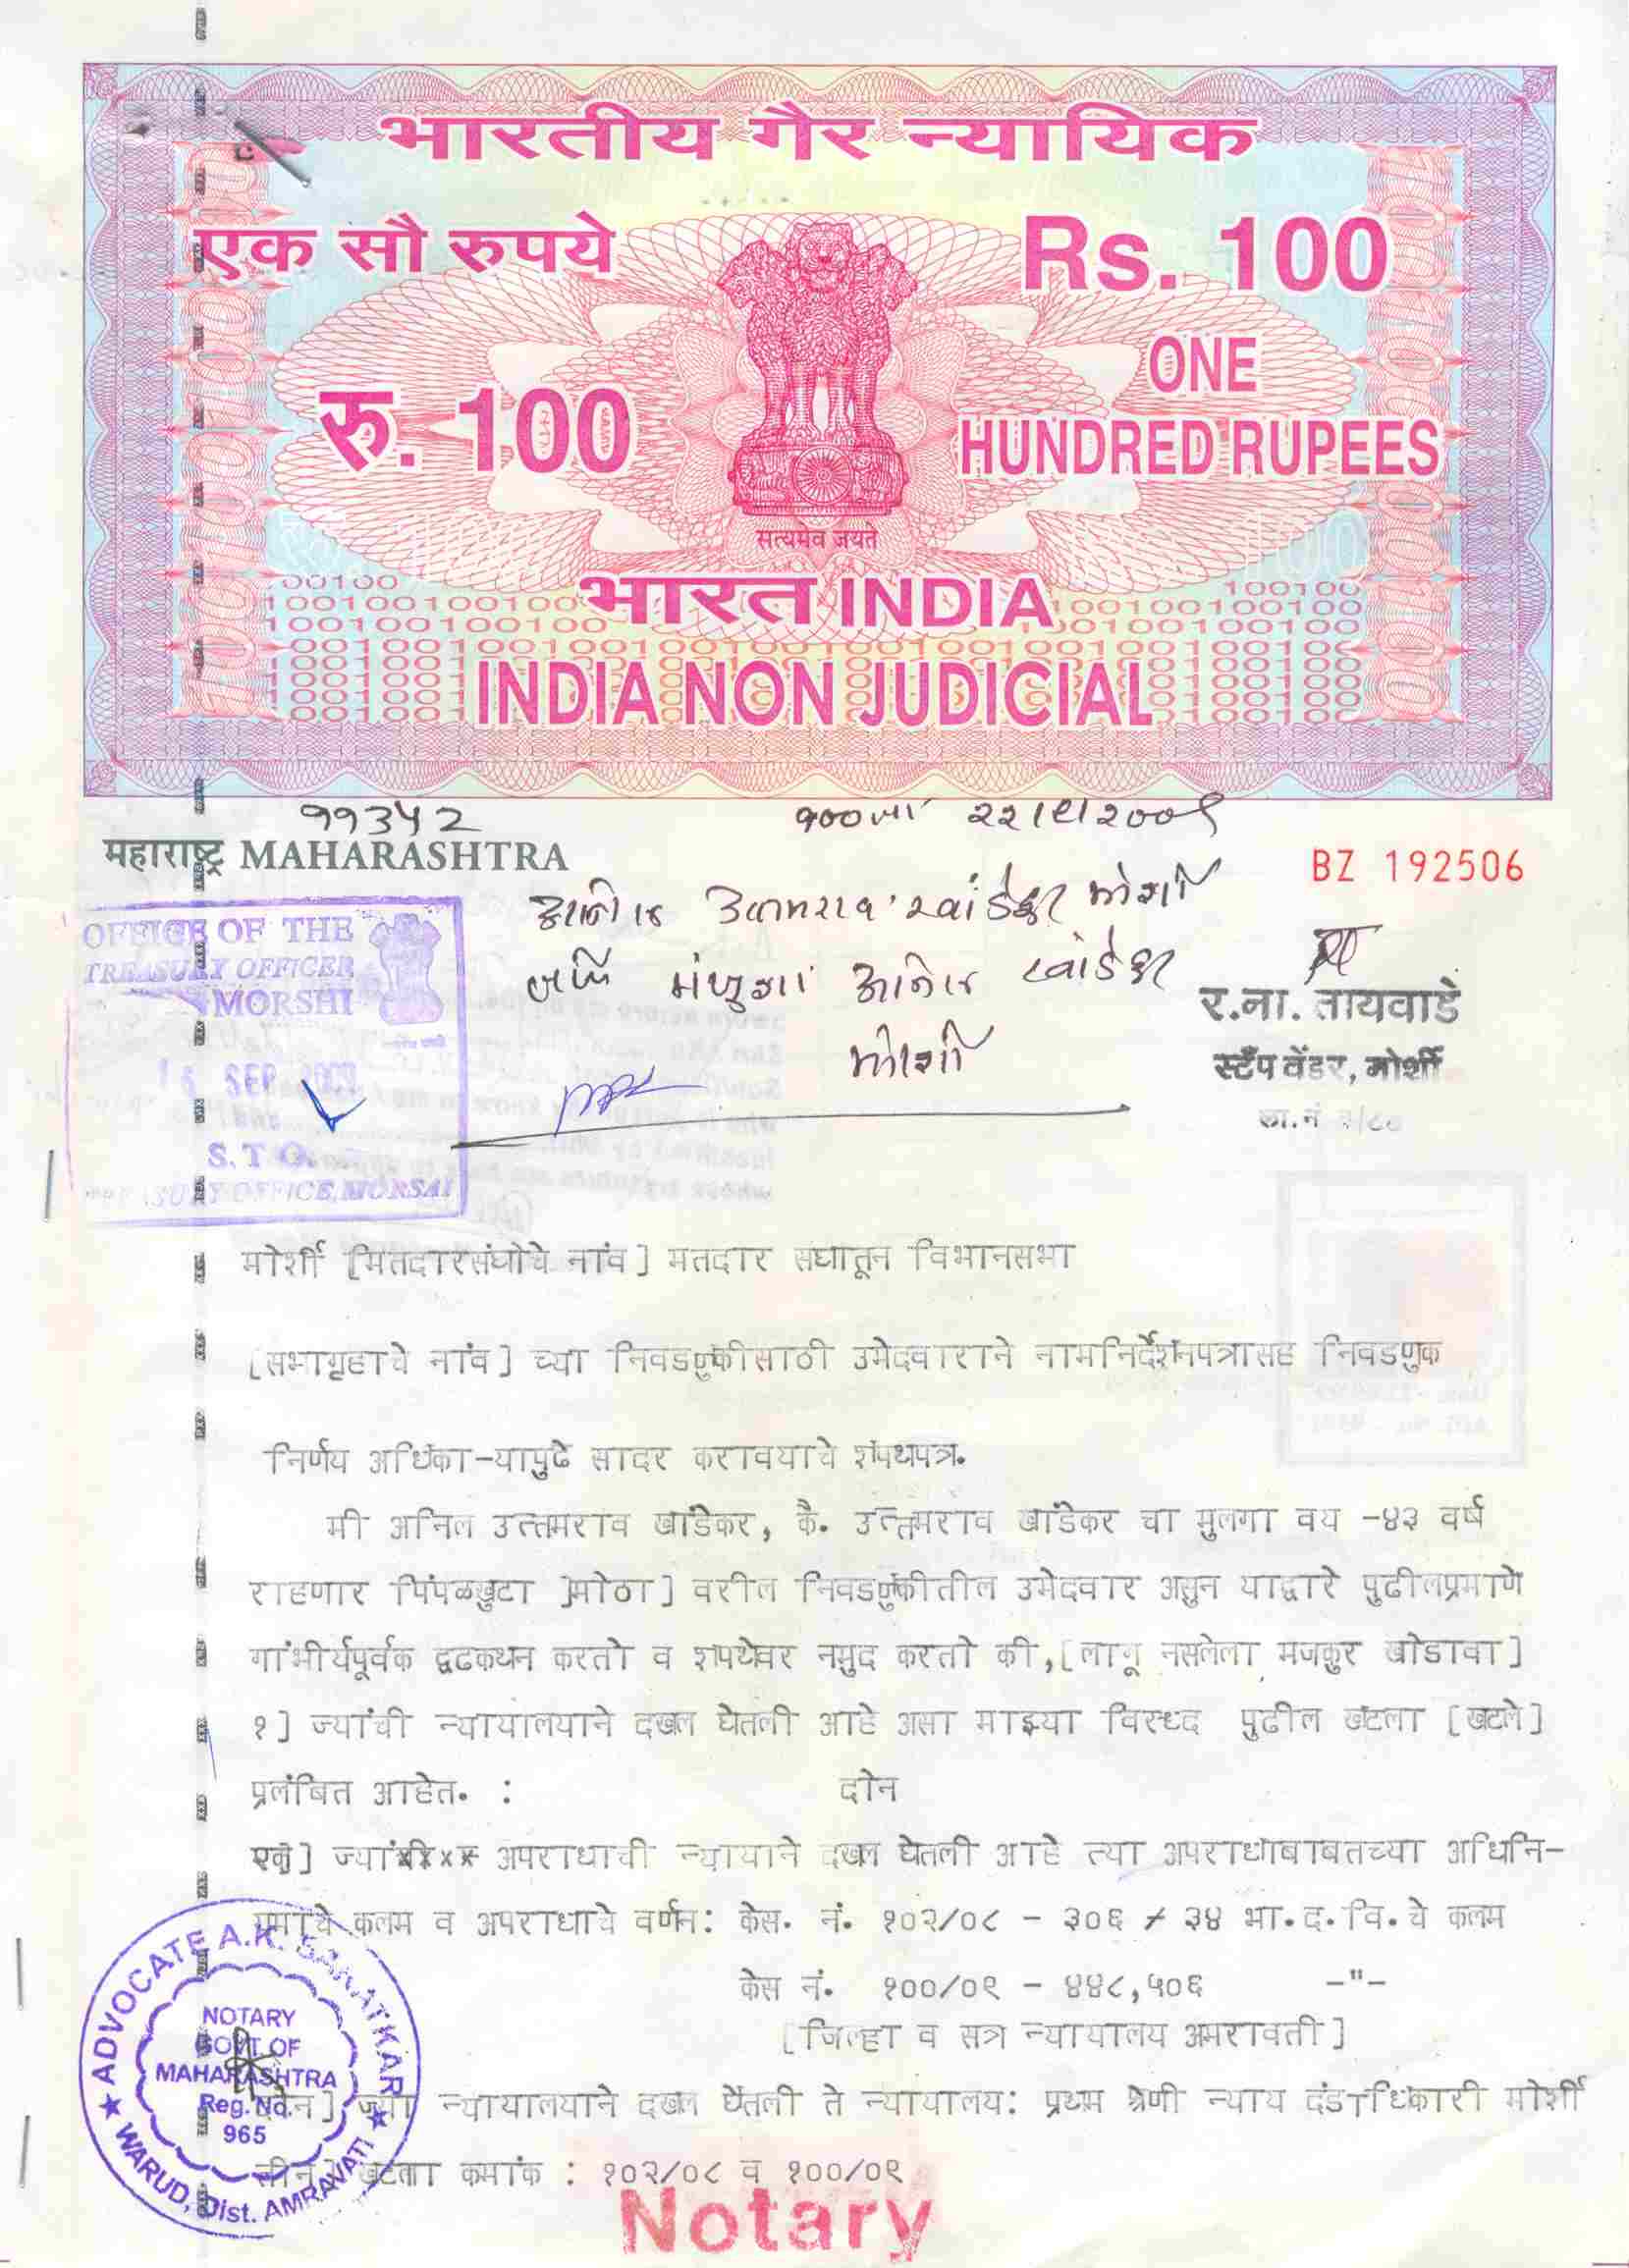 भारतीय गैर न्यायिक
एक सौ रुपये
Rs. 100
रु. 100
ONE
HUNDRED RUPEES
सत्यमेव जयते
भारत INDIA
INDIA NON JUDICIAL
११३५२ २२/९/२००९
महाराष्ट्र MAHARASHTRA
BZ 192506
OFFICE OF THE
TREASURY OFFICER
MORSHI
SEP
S.T.O.
OFFICE, MORSAI
उत्तमराव खांडेकर मोर्शी
मंजुशा अनिल खांडेकर
मोर्शी
र.ना. तायवाडे
स्टॅंप वेंडर, मोर्शी
ला.नं
मोर्शी [मतदारसंघाचे नांव] मतदार संघातून विधानसभा
[सभागृहाचे नांव] च्या निवडणुकीसाठी उमेदवाराने नामनिर्देशनपत्रासह निवडणुक
निर्णय अधिका-यापुढे सादर करावयाचे शपथपत्र.
मी अनिल उत्तमराव खांडेकर, कै. उत्तमराव खांडेकर चा मुलगा वय -४३ वर्ष
राहणार पिंपळखुटा ]मोठा] वरील निवडणुकीतील उमेदवार असुन याद्वारे पुढीलप्रमाणे
गांभीर्यपूर्वक द्वढकथन करतो व शपथेवर नमुद करतो की,[लागू नसलेला मजकुर खोडावा]
१] ज्यांची न्यायालयाने दखल घेतली आहे असा माझ्या विरध्द पुढील खटला [खटले]
प्रलंबित आहेत. : दोन
एक] ज्या अपराधाची न्यायाने दखल घेतली आहे त्या अपराधाबाबतच्या अधिनि-
यमाचे कलम व अपराधाचे वर्णन: केस. नं. १०२/०८ - ३०६ / ३४ भा.द.वि.चे कलम
केस नं. १००/०९ - ४४८,५०६ -"-
[जिल्हा व सत्र न्यायालय अमरावती]
दोन] ज्या न्यायालयाने दखल घेतली ते न्यायालय: प्रथम श्रेणी न्याय दंडाधिकारी मोर्शी
तीन] खटला कमांक : १०२/०८ व १००/०९
ADVOCATE A.K. SARATKAR
NOTARY
GOVT OF
MAHARASHTRA
Reg. No.
965
WARUD, Dist. AMRAVATI
Notary